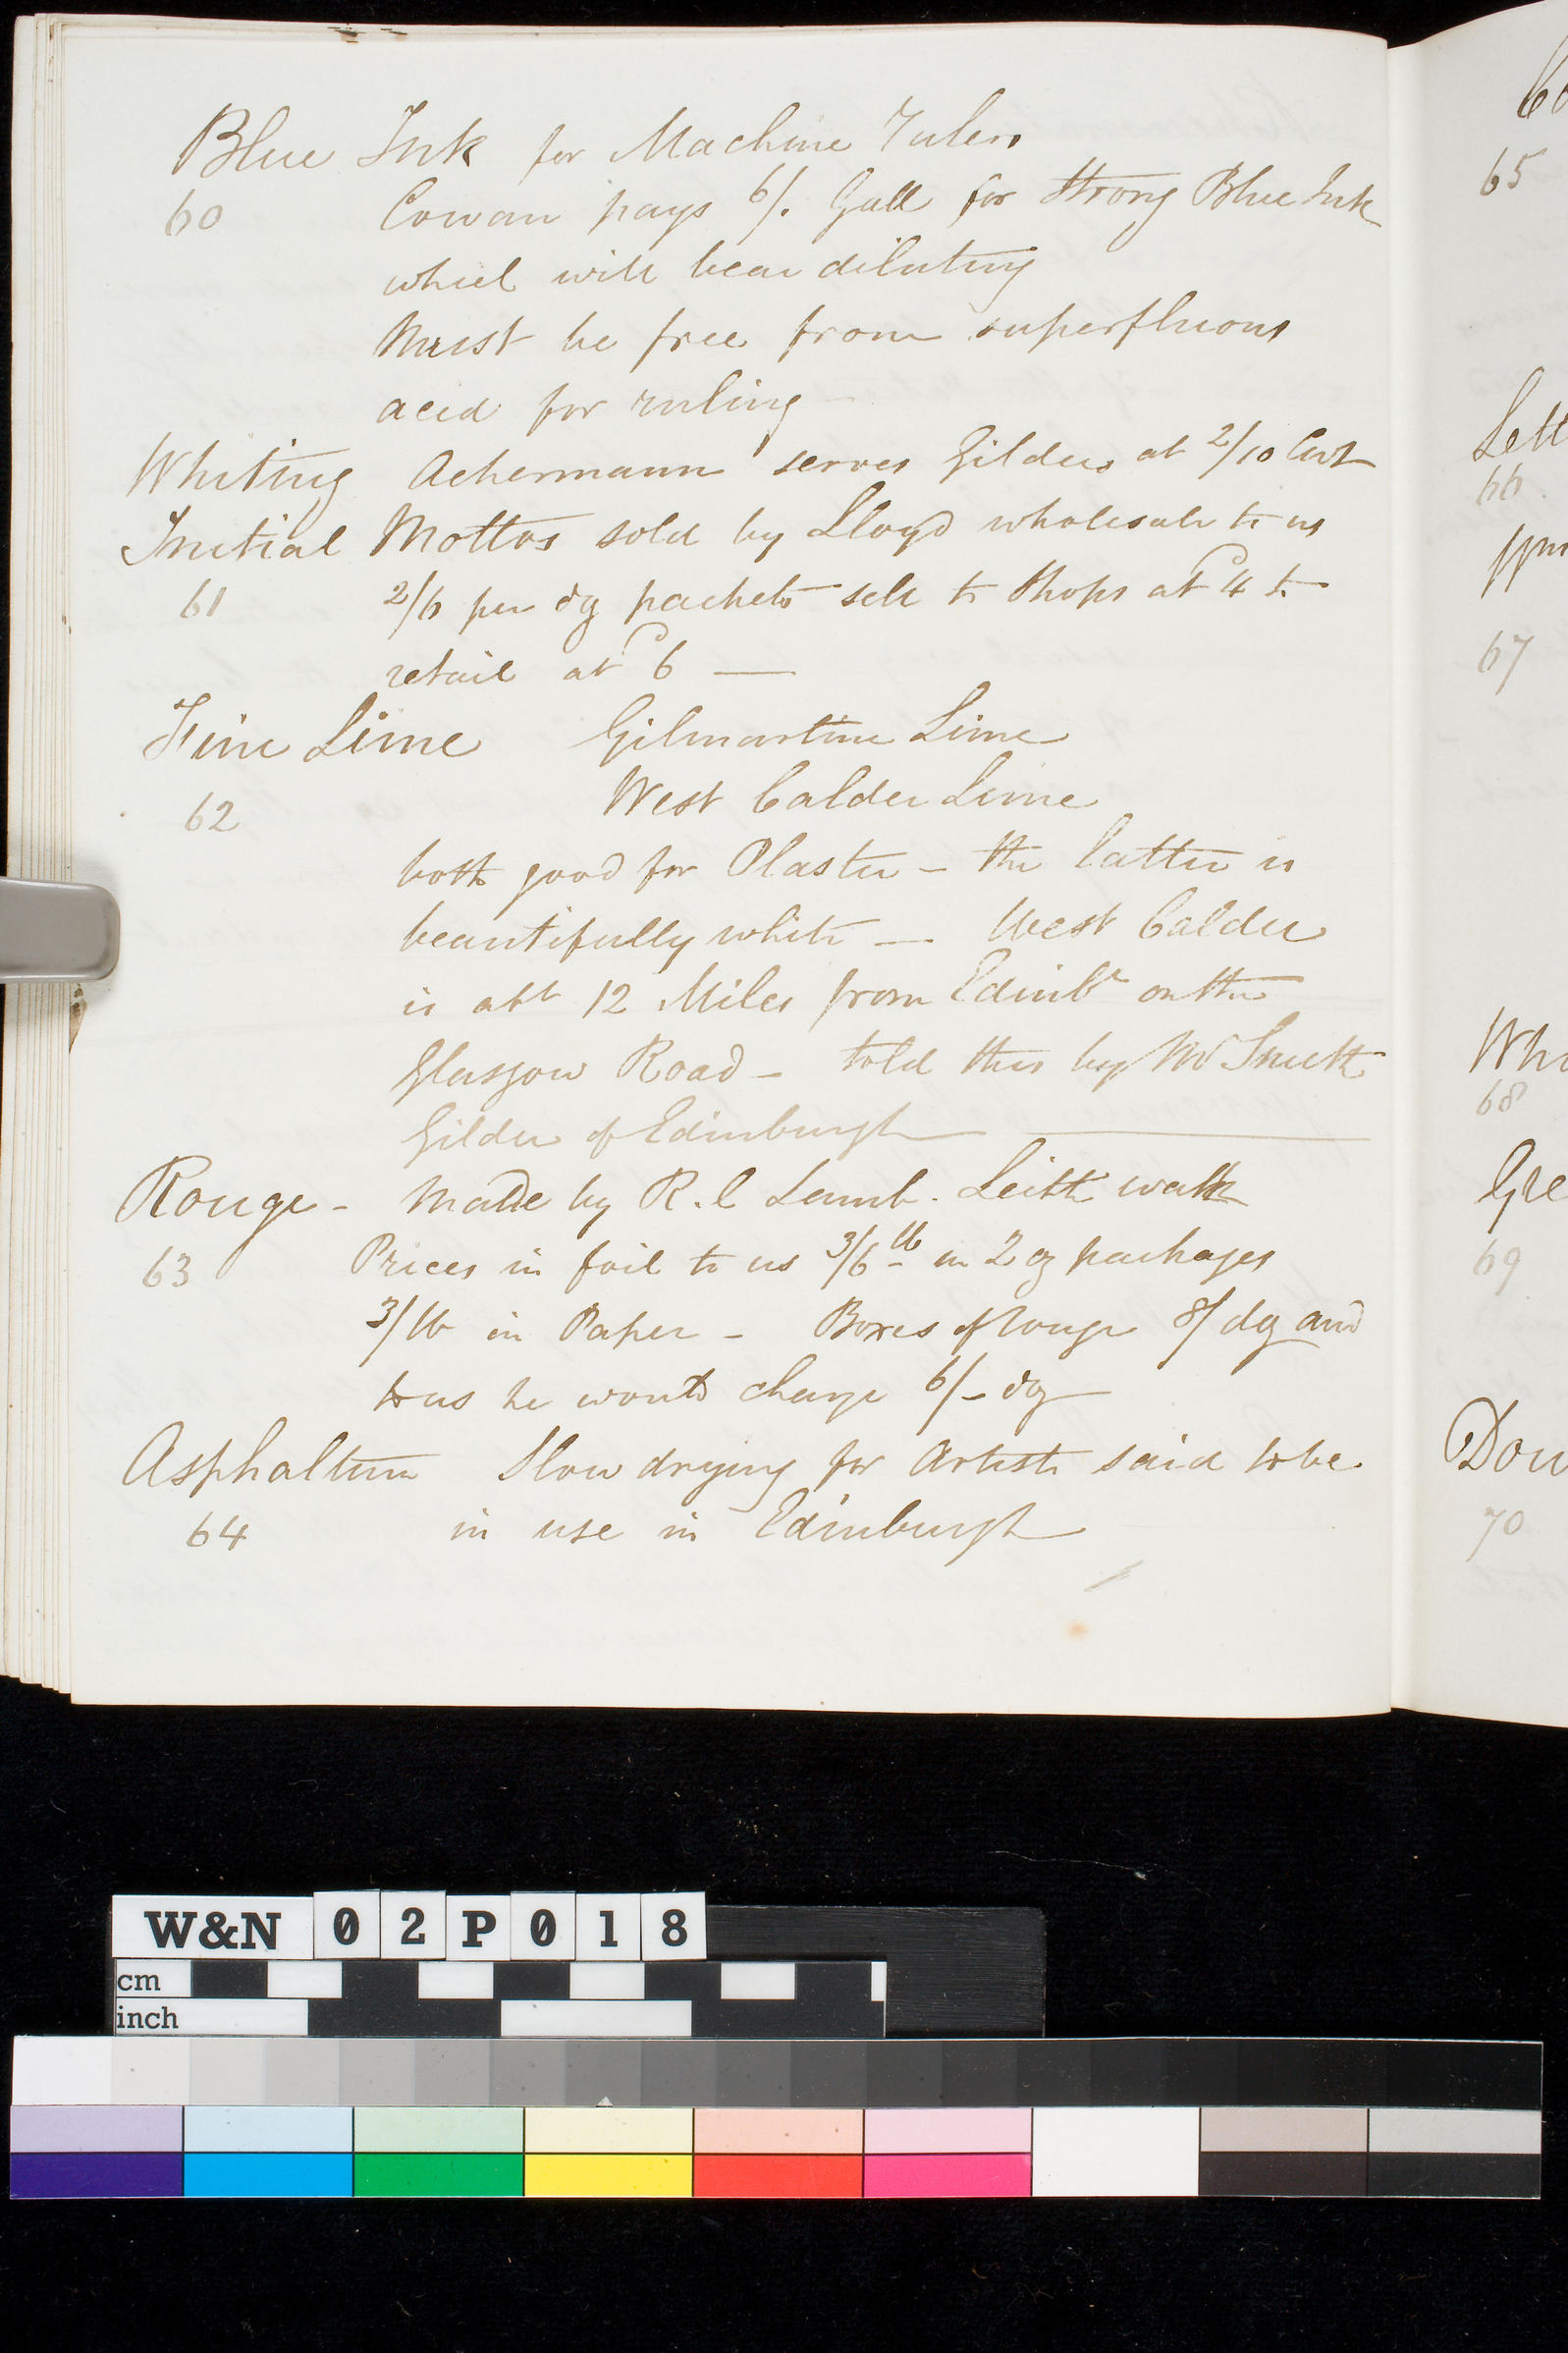 Blue Ink for Machine Rulers
60 Cowan pays 6/. Gall for Strong Blue Ink
which will bear diluting
Must be free from superfluous
acid for ruling
Whiting Ackermann serves Gilders at 2/10 Cwt
Initial Mottos sold by Lloyd wholesale to us
61 2/6 per dz packets sell to Shops at 4 to
retail at 6 —
Fine Lime Gilmartine Lime
West Calder Lime
62
both good for Plaster – the latter is
beautifully white — West Calder
is abt 12 Miles from Edinbr on the
Glasgow Road – told this by Mr Smith
Gilder of Edinburgh —
Rouge – Made by R. C Lamb. Leith walk
63 Prices in foil to us 3/6 lb in 2 oz packages
3/ lb in Paper – Boxes of rouge 8/ dz and
to us he would charge 6/– dz
Asphaltum Slow drying for Artists said to be
64 in use in Edinburgh
65
Lett
66
67
Whi
68
Gre
69
Dou
70
W&N 02P018
cm
inch